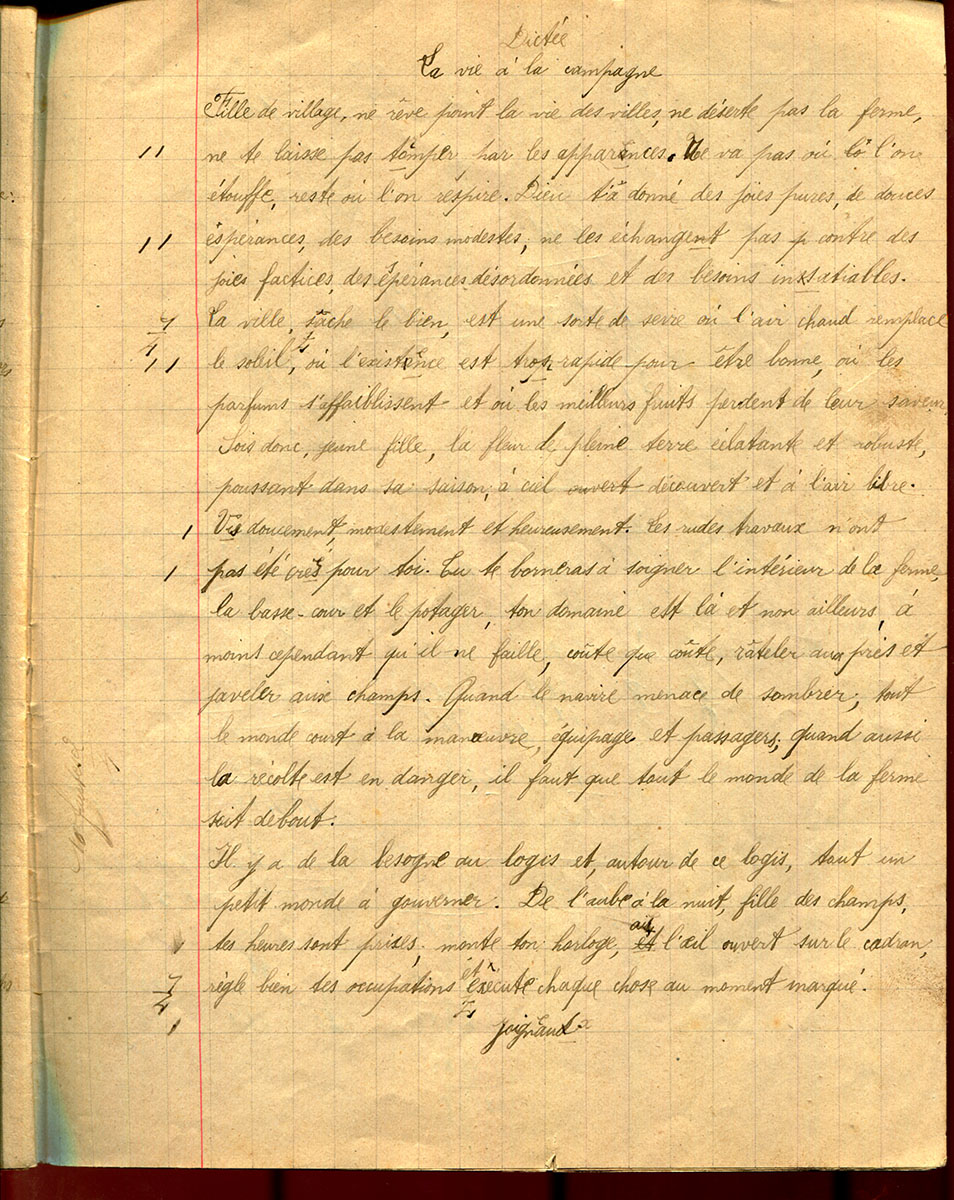 Dictée
La vie à la campagne
Fille de village, ne rêve point la vie des villes, ne déserte pas la ferme,
ne te laisse pas tomper par les apparences. Ne va pas où l'on
étouffe, reste où l'on respire. Dieu t'a donné des joies pures, de douces
éspérances, des besoins modestes; ne les échangent pas contre des
joies factices, des éspérances désordonnées et des besoins insatiables.
La ville, sache le bien, est une sorte de serre où l'air chaud remplace
le soleil, où l'existence est trop rapide pour être bonne, où les
parfums s'affaiblissent et où les meilleurs fruits perdent de leur saveur.
Sois donc, jeune fille, la fleur de pleine terre éclatante et robuste,
poussant dans sa saison, à ciel ouvert découvert et à l'air libre.
Vis doucement, modestement et heureusement. Les rudes travaux n'ont
pas été créés pour toi. Tu te borneras à soigner l'intérieur de la ferme,
la basse-cour et le potager, ton domaine est là et non ailleurs, à
moins cependant qu'il ne faille, coûte que coûte, râteler aux près et
javeler aux champs. Quand le navire menace de sombrer, tout
le monde court à la manœuvre, équipage et passagers; quand aussi
la récolte est en danger, il faut que tout le monde de la ferme
soit debout.
Il y a de la besogne au logis et, autour de ce logis, tout un
petit monde à gouverner. De l'aube à la nuit, fille des champs,
tes heures sont prises; monte ton horloge, et l'œil ouvert sur le cadran,
règle bien tes occupations et exécute chaque chose au moment marqué.
Joigneaux